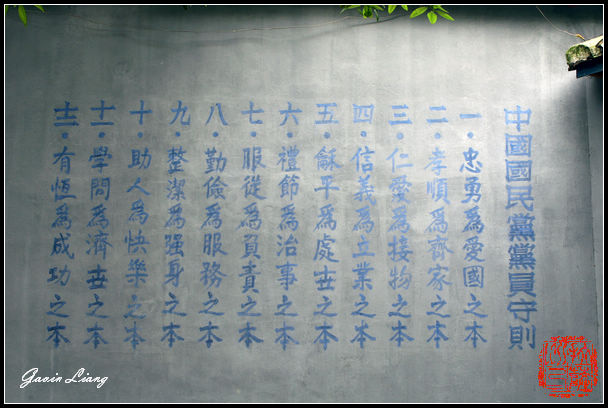 中國國民黨黨員守則
一·忠勇爲愛國之本
二·孝順爲齊家之本
三·仁愛爲接物之本
四·信義爲立業之本
五·龢平爲處世之本
六·禮節爲治事之本
七·服從爲負責之本
八·勤儉爲服務之本
九·整潔爲强身之本
十·助人爲快樂之本
十一·學問爲濟世之本
十二·有恆爲成功之本
Gavin Liang